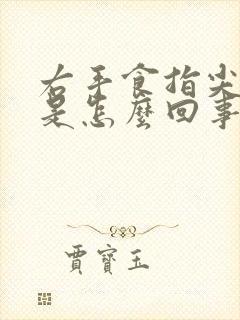 右手食指尖
是怎麼回事
賈寶玉